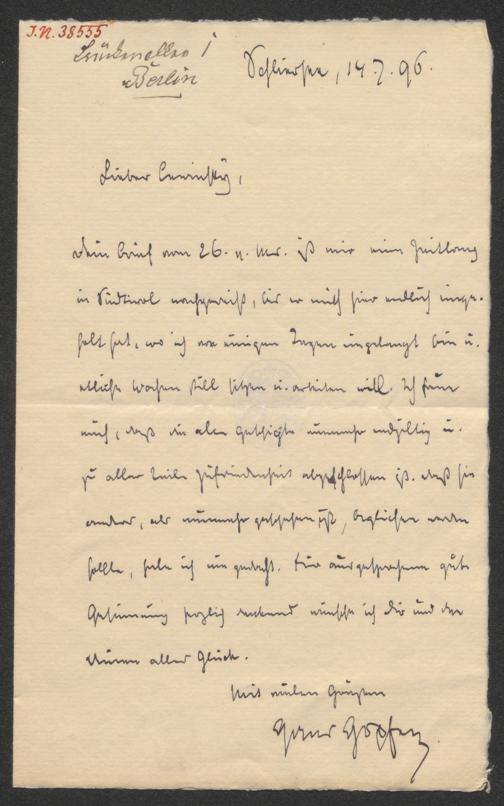 J.N. 38555
Brückenallee 1
Berlin
Schliersee, 14.7.96.
Lieber Lewinsky,
Dein Brief vom 26. v. Mts. ist mir eine Zeitlang
in Südtirol nachgereist, bis er mich hier endlich einge-
holt hat, wo ich vor einigen Tagen eingelangt bin u.
etliche Wochen still sitzen u. arbeiten will. Ich freue
mich, daß die alte Geschichte nunmehr endgiltig u.
zu aller Teile Zufriedenheit abgeschlossen ist. Daß sie
anders, als nunmehr geschehen ist, beglichen werden
sollte, habe ich nie gedacht. Für ausgesprochene gute
Gesinnung herzlich dankend wünsche ich Dir und den
Deinen alles Glück.
Mit vielen Grüßen
Hans Hopfen